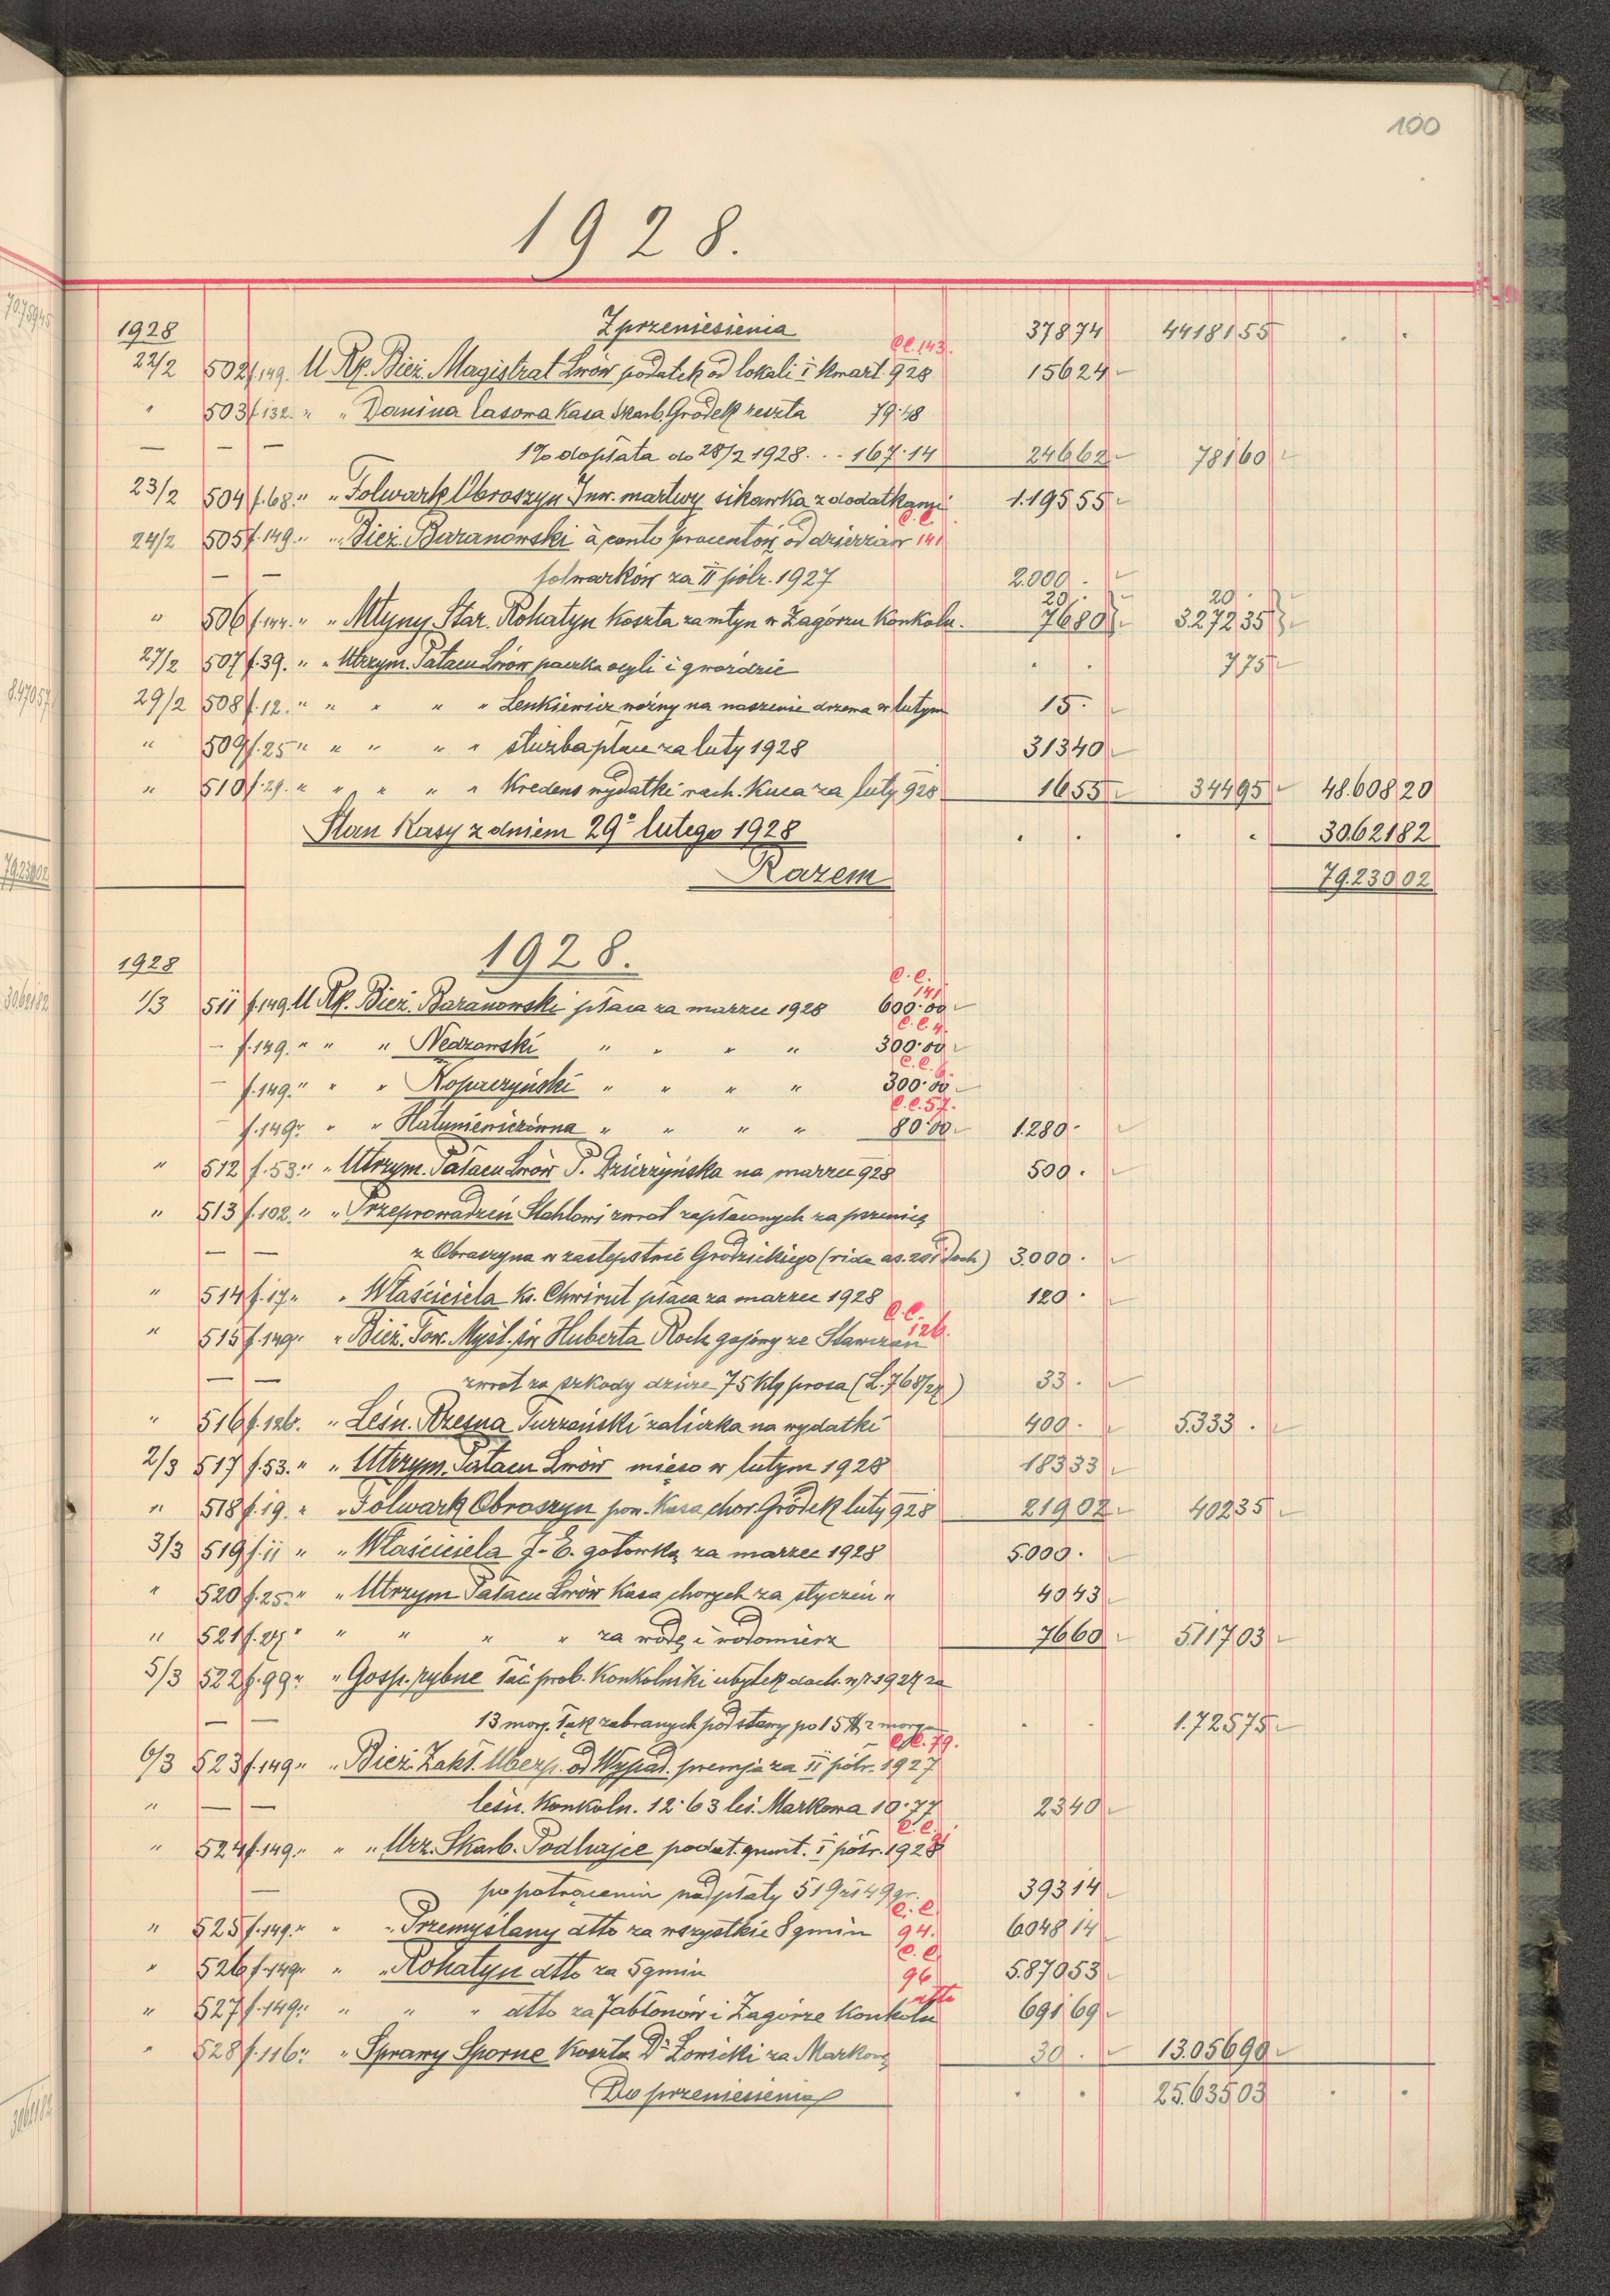 100
1928.
1928 Z przeniesienia 378 74 44181 55 . .
C.C. 143.
22/2 502 f.149. U Rp. Bież. Magistrat Lwów podatek od lokali I kwart. 928 156 24
" 503 f.132. " " Danina lasowa Kasa Skarb. Gródek reszta 79.48
— — — 1% dopłata do 28/2 1928 . . - 167.14 246 62 781 60
23/2 504 f.68. " " Folwark Obroszyn Inw. martwy sikawka z dodatkami 1.195 55
C.C.
24/2 505 f.149. " " Bież. Baranowski à conto procentów od dzierżaw 141
— — folwarków za II półr. 1927 2.000 .
20 . 20 .
" 506 f.144. " " Młyny Star. Rohatyn Koszta za młyn w Zagórzu Konkoln. 76 80 3.272 35
27/2 507 f.39. " " Utrzym. Pałacu Lwów paczka ocyli i gwoździe . . 7 75
29/2 508 f.12. " " " " " Lenkiewicz woźny na noszenie drzewa w lutym 15 .
" 509 f.25 " " " " " służba płace za luty 1928 313 40
" 510 f.29. " " " " " Kredens wydatki rach. Kuca za luty 928 16 55 344 95 48.608 20
Stan Kasy z dniem 29º lutego 1928 . . . . 30.621 82
Razem 79.230 02
1928.
1928
C.C.
141
1/3 511 f.149. U Rp. Bież. Baranowski płaca za marzec 1928 600.00
C.C. 4.
— f.149. " " " Nedzowski " " " " 300.00
C.C. 6.
— f.149. " " " Kopaczyński " " " " 300.00
C.C. 57.
— f.149. " " " Hałuniewiczówna " " " " 80.00 1.280 .
" 512 f.53. " " Utrzym. Pałacu Lwów P. Dzierżyńska na marzec 928 500 .
" 513 f.102. " " Przeprowadzeń Stahlowi zwrot zapłaconych za pszenicę
— — z Obroszyna w zastępstwie Grodzickiego (vide as. 201 Doch) 3.000 .
" 514 f.17. " " Właściciela Ks. Chwirut płaca za marzec 1928 120 .
C.C.
126.
" 515 f.149. " " Bież. Tow. Myśl. św Huberta Roch gajowy ze Stawczan
— — zwrot za szkody dzicze 75 klg prosa (L. 768/27) 33 .
" 516 f.126. " Leśn. Rzesna Turzański zaliczka na wydatki 400 . 5.333 .
2/3 517 f.53. " " Utrzym. Pałacu Lwów mięso w lutym 1928 183 33
" 518 f.19. " " Folwark Obroszyn pow. Kasa chor. Gródek luty 928 219 02 402 35
3/3 519 f.11 " " Właściciela J. E. gotówką za marzec 1928 5.000 .
" 520 f.25. " " Utrzym Pałacu Lwów Kasa chorych za styczeń " 40 43
" 521 f.27. " " " " " za wodę i wodomierz 76 60 5.117 03
5/3 522 f.99. " " Gosp. rybne Łać prob. Konkolniki ubytek doch. w r. 1927 za
— — 13 morg. łąk zabranych pod stawy po 15 z morga . . 1.725 75
C.C. 79.
6/3 523 f.149. " " Bież. Zakł. Ubezp. od Wypad. premja za II półr. 1927
" — — leśn. Konkoln. 12.63 leś. Markowa 10.77 23 40
C.C.
91
" 524 f.149. " " " Urz. Skarb. Podhajce podat. grunt. I półr. 1928
— po potrąceniu nadpłaty 519 zł 49 gr. 393 14
C.C.
" 525 f.149. " " " Przemyślany dtto za wszystkie 8 gmin 94. 6.048 14
C.C.
" 526 f.149. " " " Rohatyn dtto za 5 gmin 96 5.870 53
dtto
" 527 f.149. " " " " dtto za Jabłonów i Zagórze Konkoln 691 69
" 528 f.116. " " Sprawy Sporne Koszta Dr Łowicki za Markową 30 . 13.056 90
Do przeniesienia . . 25.635 03 . .